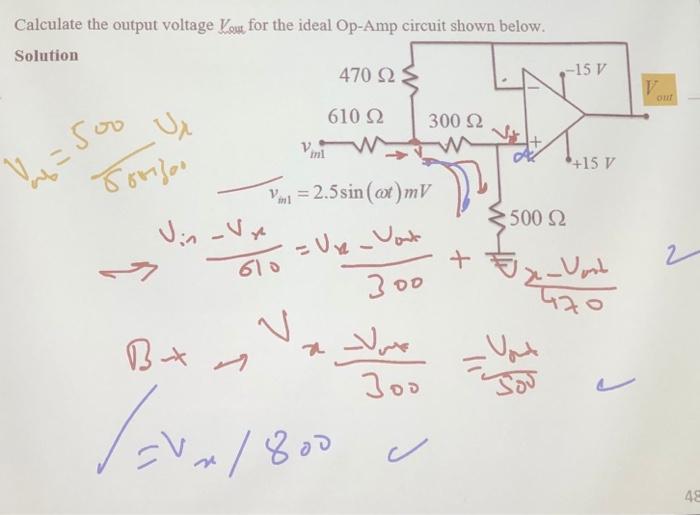 Calculate the output voltage Vout for the ideal Op-Amp circuit shown below.
Solution
470 Ω
-15 V
Vout
610 Ω
300 Ω
Vx
V+
- 
+
vin1
+15 V
vin1 = 2.5sin(ωt)mV
500 Ω
Vout = 500 / 500+300 Vx
→ Vin - Vx / 610 = Vx - Vout / 300 + Vx - Vout / 470
B-x → Vx - Vout / 300 = Vout / 500
= Vx / 800
48